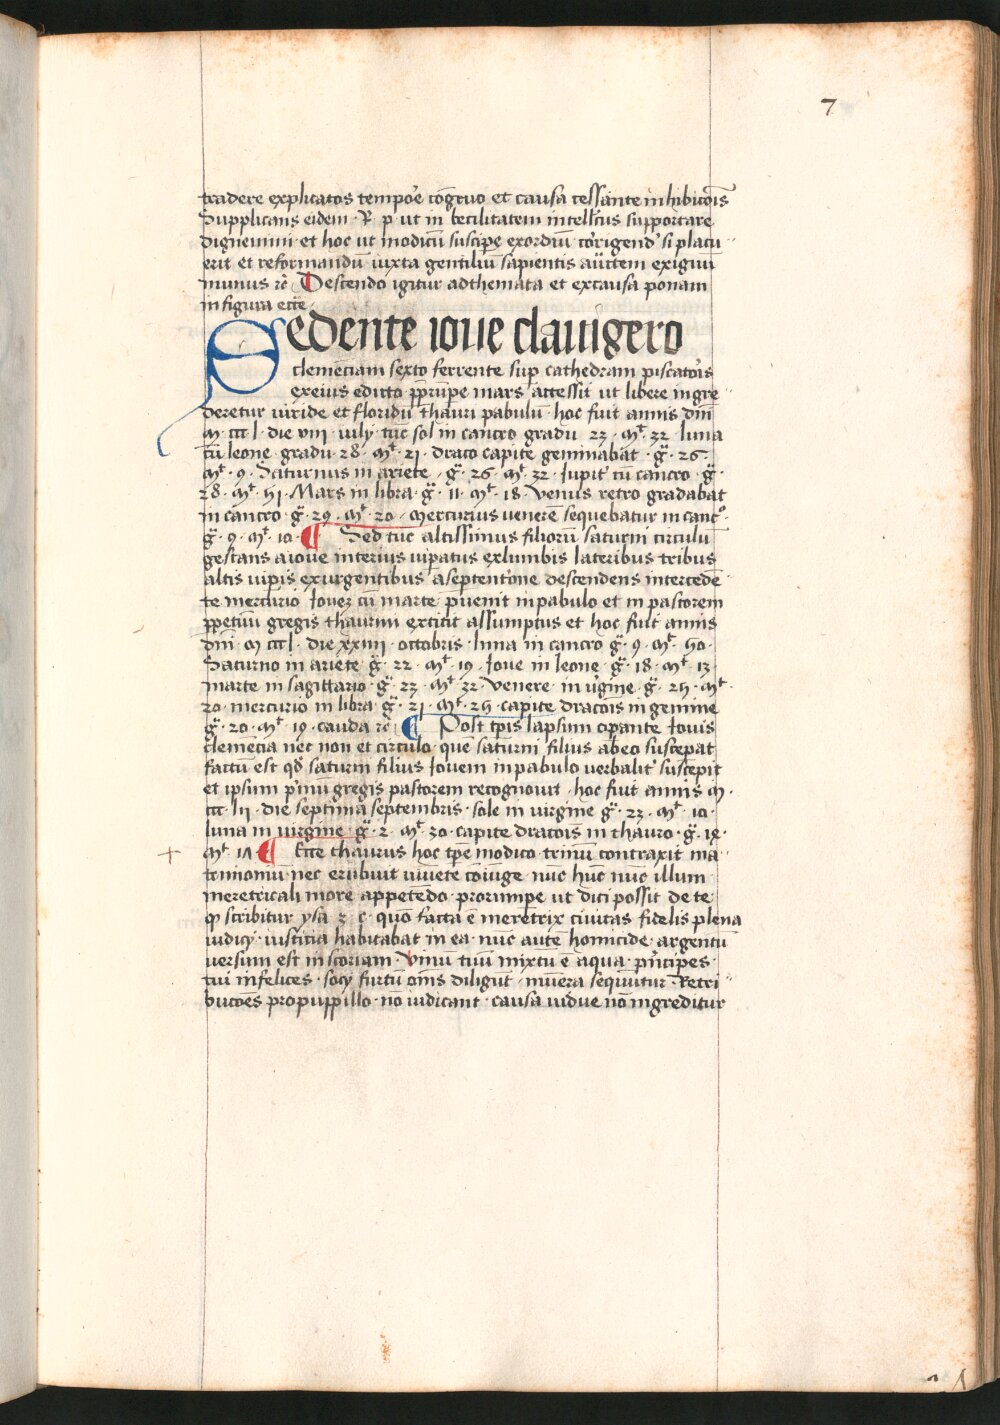 7
tradere explicatos tempoꝛe cõgruo et causa cessante inhibicõis
Supplicans eidem · R · p · ut in becilitatem intellcũs supportare
dignemini · et hoc ut modicũ suscipe exordiũ coꝛrigend' si placu
erit et reformandũ iuxta gentiliũ sapientis auctem exiguũ
munus ꝛc̃ Descendo igitur adthemata et excausa ponam
in figura ecce
Sedente ioue clauigero
clemẽciam sexto ferrente sup cathedram piscatoꝛis
exeius edicto ꝓprũpe mars accessit ut libere ingre
deretur uiride et floridũ thauri pabulũ · hoc fuit annis dñi
m · ccc l · die viii · iulij · tũc sol in cancro gradu · 23 · mᵗ · 32 · luna
cũ leone gradu · 28 · mᵗ · 21 · draco capite geminabat · gͣ · 26 ·
mᵗ · 9 · Saturnus in ariete · gͣ · 26 · mᵗ · 32 · Jupit' cũ cancro · gͣ ·
28 · mᵗ · 51 · Mars in libra · gͣ · 11 · mᵗ · 18 · Venus retro gradabat
in cancro · gͣ · 29 · mᵗ · 20 · Mercurius venerẽ sequebatur in canc°·
gͣ · 9 · mᵗ · 10 · ¶ Sed tũc altissimus filiorũ saturni circulũ
gestans aioue interius uipatus exlumbis lateribus tribus
altis uipis exurgentibus aseptentrone descendens intercedẽ
te mercurio Jouez cũ marte puenit inpabulo et in pastorem
ꝓpetuũ gregis thaurini extitit assumptus et hoc fuit annis
dñi · m ccc l · die xxiiii · octobris · luna in cancro gͣ · 9 · mᵗ · 50 ·
Saturno in ariete · gͣ · 22 · mᵗ · 19 · Joue in leone · gͣ · 18 · mᵗ · 13 ·
marte in sagittario · gͣ · 23 · mᵗ · 32 · Venere in ũgine · gͣ · 25 · mᵗ ·
20 · mercurio in libra · gͣ · 21 · mᵗ · 25 · capite dracõis in gemine
gͣ · 20 · mᵗ · 19 · cauda ꝛc̃ ¶ Post tp̃is lapsum cipante Jouis
clemẽcia nec non et circulo quẽ saturni filius abeo suscepat
factũ est qđ saturni filius Jouem inpabulo verbalit' suscepit
et ipsum p'mũ gregis pastorem recognouit · hoc fuit annis m ·
ccc · lii · die septima septembris · sole in virgine gͣ · 23 · mᵗ · 10 ·
luna in virgine · gͣ · 2 · mᵗ · 30 · capite dracõis in thauro · gͣ · 18 ·
mᵗ · 1Λ ¶ Ecce thaurus hoc tp̃e modico · trinũ contraxit ma
trimoniũ · nec erubuit viuẽte cõiuge nũc hũc nũc illum
meretricali more appetẽdo · prorumpe ut dici possit de te
q scribitur ysa · 2 · c · quõ facta ẽ meretrix ciuitas fidelis plena
iudicij · iusticia habitabat in ea · nũc autẽ homicide · argentũ
versum est in scoriam · Vinũ tuũ mixtũ ẽ aqua · pñcipes ·
tui infelices · socij furtũ oms diligũt · mũera sequũtur · Retri
bucões propuppillo · nõ iudicant · causa vidue nõ ingreditur